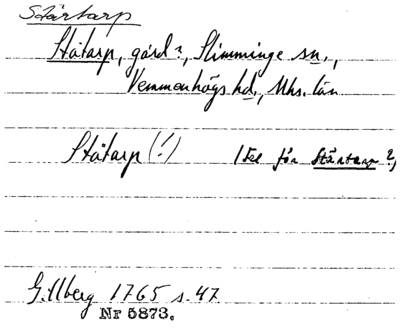 Stärtarp
Ståtarp, gård?, Slimminge sn.,
Vemmenhögs hd., Mhs. län
Ståtarp (!) (Fel för Stärtarp?)
Gillberg 1765 s. 47
Nr 5873.